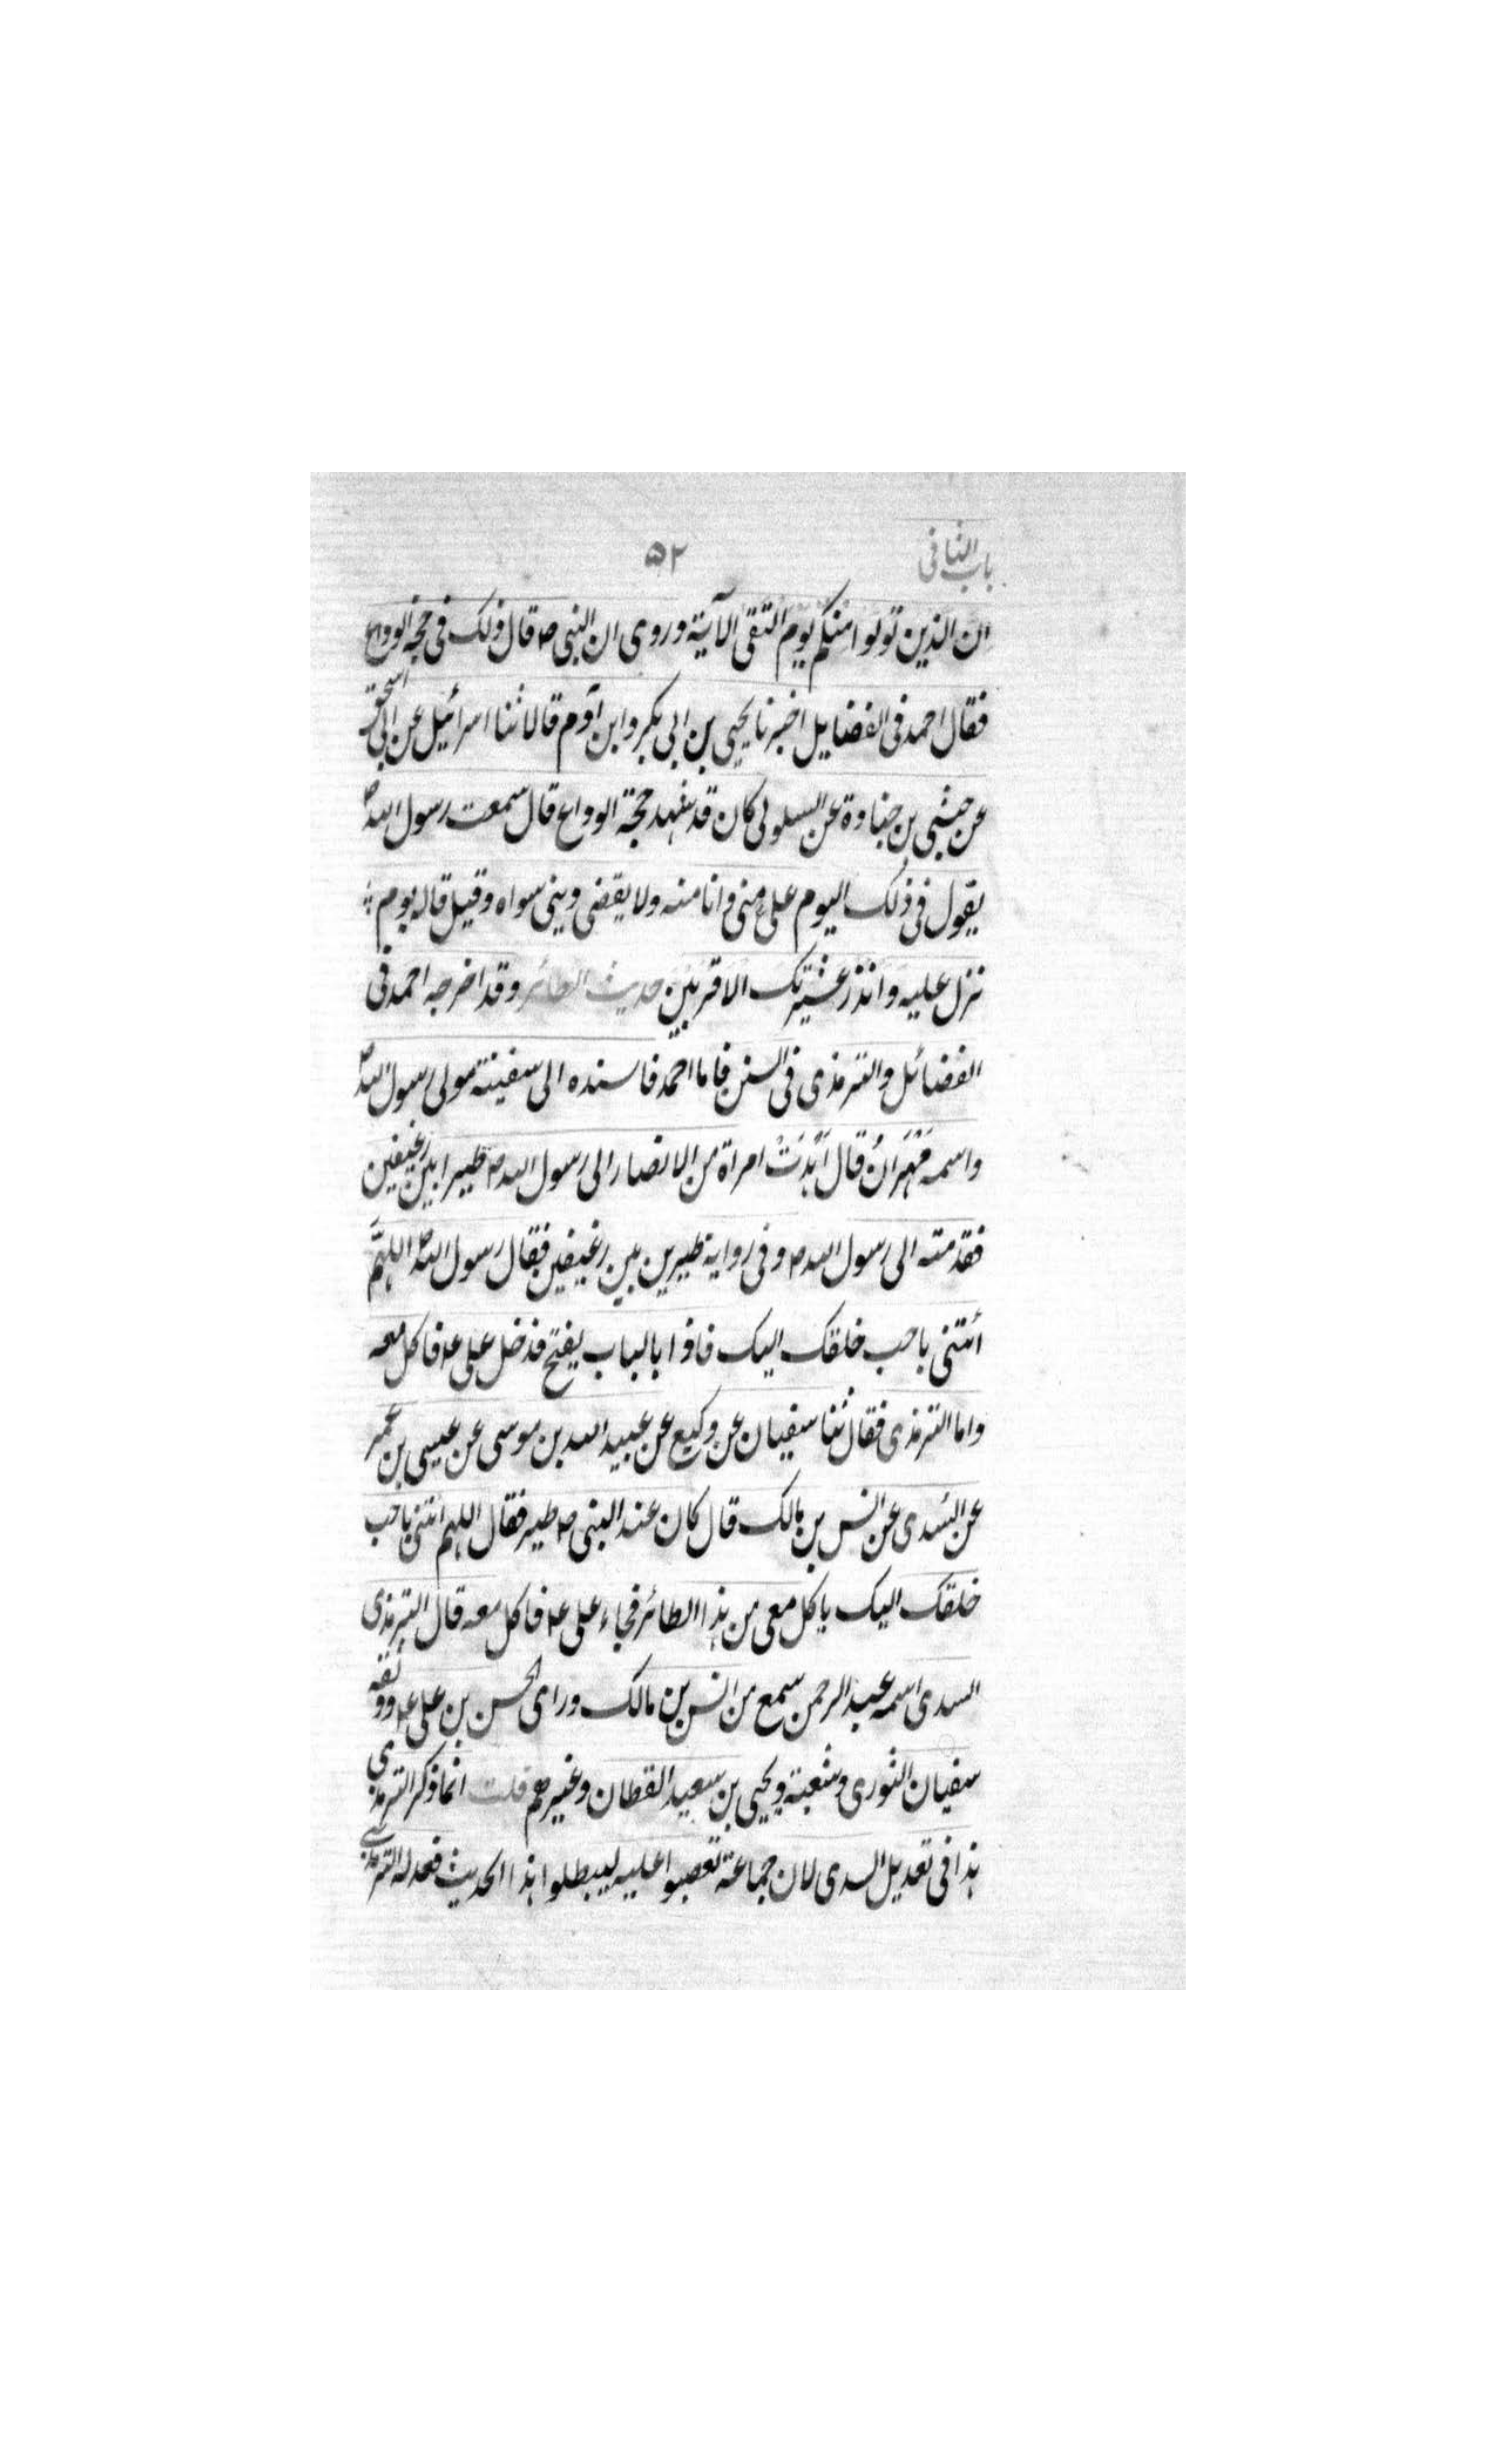 باب الثانى
۵۲
ان الذين تولوا منكم يوم التقى الآية وروى ان النبى ص قال ذلك فى حجة الوداع
فقال احمد فى الفضايل اخبرنا يحيى بن ابى بكر وابن آدم قالا ثنا اسرائيل عن ابى اسحق
عن حبشى بن جناوة عن السلولى كان قد شهد حجة الوداع قال سمعت رسول الله ص
يقول فى ذلك اليوم على منى وانا منه ولا يقضى دينى سواه وقيل قاله يوم
نزل عليه وانذر عشيرتك الاقربين حديث الطائر وقد اخرجه احمد فى
الفضائل والترمذى فى السنن فاما احمد فاسنده الى سفينة مولى رسول الله ص
واسمه مَهْرَانُ قال اَهْدَتْ امراة من الانصار الى رسول الله ص طيرا بين رغيفين
فقدمته الى رسول الله ص وفى رواية طيرين بين رغيفين فقال رسول الله ص اللهمَّ
ائتنى باحب خلقك اليك فاذا بالباب يفتح فدخل على ع فاكل معه
واما الترمذى فقال ثنا سفيان عن وكيع عن عبيد الله بن موسى عن عيسى بن عمر
عن السُدى عن انس بن مالك قال كان عند النبى ص طير فقال اللهم ائتنى باحب
خلقك اليك ياكل معى من هذا الطائر فجاء على ع فاكل معه قال الترمذى
السدى اسمه عبد الرحمن سمع من انس بن مالك وراى الحسن بن على ع ووثقه
سفيان الثورى وشعبة ويحيى بن سعيد القطان وغيرهم قلت انما ذكر الترمذى
هذا فى تعديل السدى لان جماعة تعصبوا عليه ليبطلوا هذا الحديث فعدله الترمذى